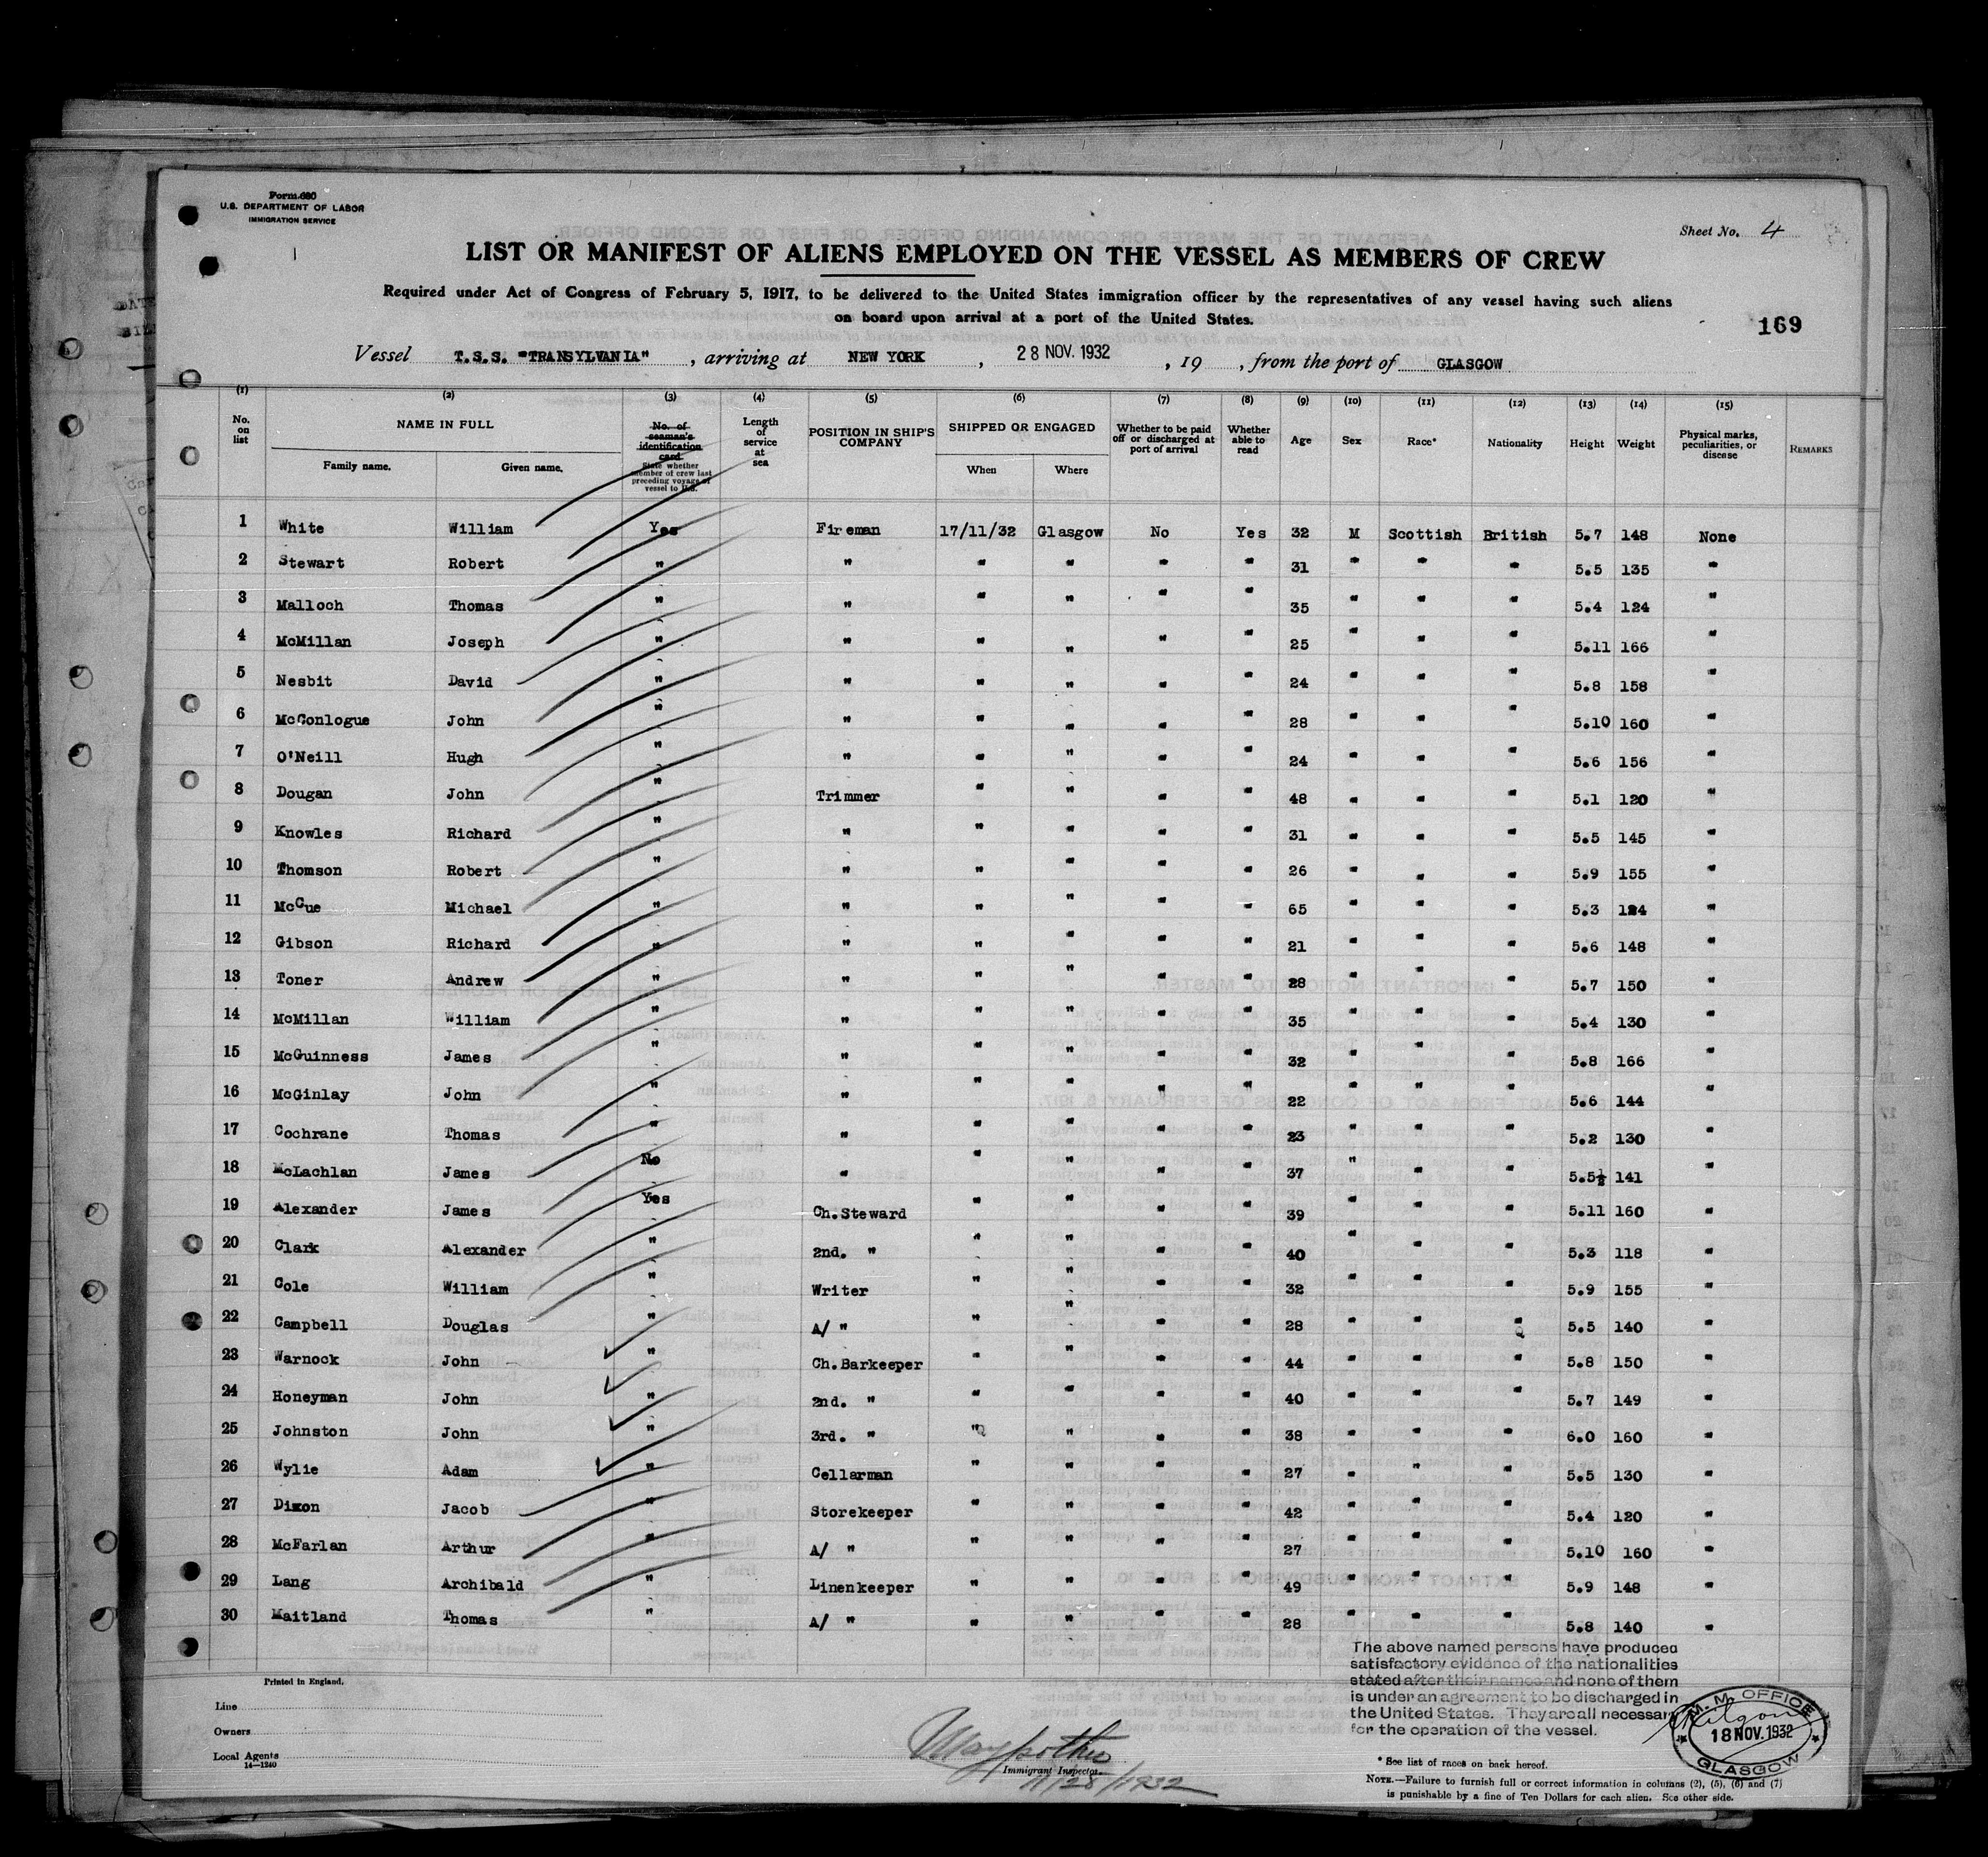 Form 680
U.S. DEPARTMENT OF LABOR
IMMIGRATION SERVICE
Sheet No. 4
LIST OR MANIFEST OF ALIENS EMPLOYED ON THE VESSEL AS MEMBERS OF CREW
Required under Act of Congress of February 5, 1917, to be delivered to the United States immigration officer by the representatives of any vessel having such aliens
on board upon arrival at a port of the United States.
169
Vessel T.S.S. "TRANSYLVANIA", arriving at NEW YORK, 28 NOV. 1932, 19 , from the port of GLASGOW
(1) (2) (3) (4) (5) (6) (7) (8) (9) (10) (11) (12) (13) (14) (15)
No. on list NAME IN FULL Family name. Given name. No. of seaman's identification card State whether member of crew last preceding voyage of vessel to U.S. Length of service at sea POSITION IN SHIP'S COMPANY SHIPPED OR ENGAGED When Where Whether to be paid off or discharged at port of arrival Whether able to read Age Sex Race* Nationality Height Weight Physical marks, peculiarities, or disease REMARKS
1 White William Yes Fireman 17/11/32 Glasgow No Yes 32 M Scottish British 5.7 148 None
2 Stewart Robert " " " " " " 31 " " " 5.5 135 "
3 Malloch Thomas " " " " " " 35 " " " 5.4 124 "
4 McMillan Joseph " " " " " " 25 " " " 5.11 166 "
5 Nesbit David " " " " " " 24 " " " 5.8 158 "
6 McConlogue John " " " " " " 28 " " " 5.10 160 "
7 O'Neill Hugh " " " " " " 24 " " " 5.6 156 "
8 Dougan John " Trimmer " " " " 48 " " " 5.1 120 "
9 Knowles Richard " " " " " " 31 " " " 5.5 145 "
10 Thomson Robert " " " " " " 26 " " " 5.9 155 "
11 McCue Michael " " " " " " 65 " " " 5.3 124 "
12 Gibson Richard " " " " " " 21 " " " 5.6 148 "
13 Toner Andrew " " " " " " 28 " " " 5.7 150 "
14 McMillan William " " " " " " 35 " " " 5.4 130 "
15 McGuinness James " " " " " " 32 " " " 5.8 166 "
16 McGinlay John " " " " " " 22 " " " 5.6 144 "
17 Cochrane Thomas " " " " " " 23 " " " 5.2 130 "
18 McLachlan James No " " " " " 37 " " " 5.5½ 141 "
19 Alexander James Yes Ch.Steward " " " " 39 " " " 5.11 160 "
20 Clark Alexander " 2nd. " " " " " 40 " " " 5.3 118 "
21 Cole William " Writer " " " " 32 " " " 5.9 155 "
22 Campbell Douglas " A/ " " " " " 28 " " " 5.5 140 "
23 Warnock John " Ch.Barkeeper " " " " 44 " " " 5.8 150 "
24 Honeyman John " 2nd. " " " " " 40 " " " 5.7 149 "
25 Johnston John " 3rd. " " " " " 38 " " " 6.0 160 "
26 Wylie Adam " Cellarman " " " " 27 " " " 5.5 130 "
27 Dixon Jacob " Storekeeper " " " " 42 " " " 5.4 120 "
28 McFarlan Arthur " A/ " " " " " 27 " " " 5.10 160 "
29 Lang Archibald " Linenkeeper " " " " 49 " " " 5.9 148 "
30 Maitland Thomas " A/ " " " " " 28 " " " 5.8 140 "
The above named persons have produced
satisfactory evidence of the nationalities
stated after their names and none of them
is under an agreement to be discharged in
the United States. They are all necessary
for the operation of the vessel.
M. M. OFFICE
18 NOV. 1932
GLASGOW
Printed in England.
Line
Owners
Local Agents
14—1240
Immigrant Inspector.
11/28/1932
* See list of races on back hereof.
NOTE.—Failure to furnish full or correct information in columns (2), (5), (6) and (7)
is punishable by a fine of Ten Dollars for each alien. See other side.